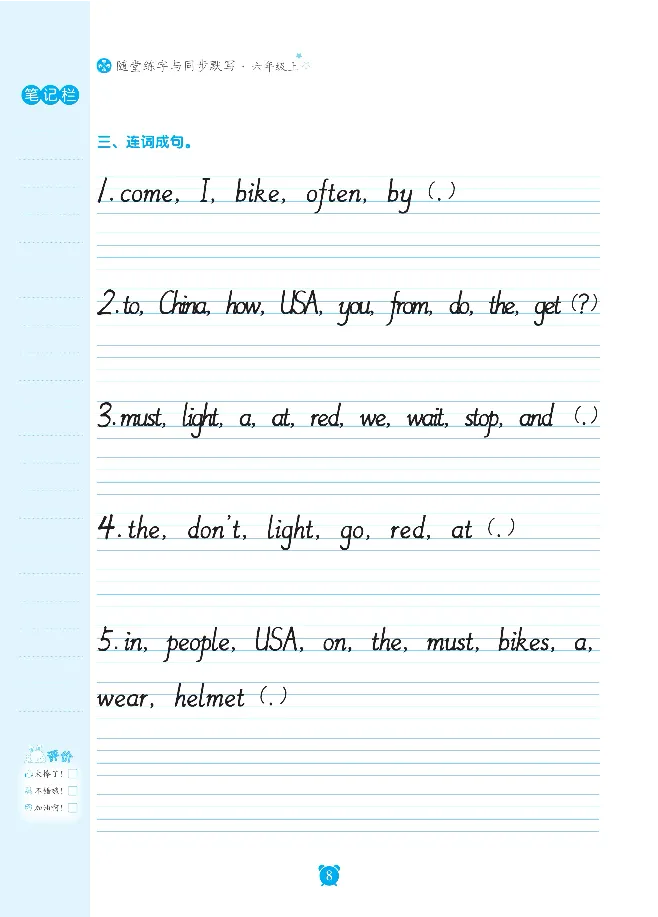 随堂练字与同步默写·六年级上
笔记栏
三、连词成句。
1. come, I, bike, often, by (.)
2. to, China, how, USA, you, from, do, the, get (?)
3. must, light, a, at, red, we, wait, stop, and (.)
4. the, don't, light, go, red, at (.)
5. in, people, USA, on, the, must, bikes, a,
wear, helmet (.)
评价
太棒了!
不错哦!
加油啊!
8